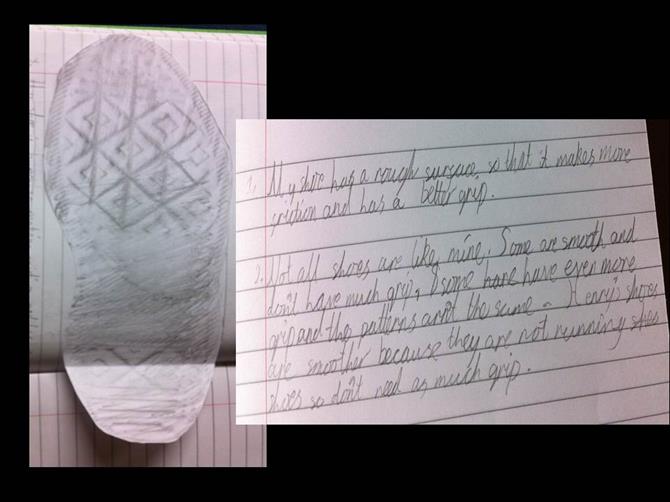 1. My shoe has a rough sursace, so that it makes more
friction and has a better grip.
2. Not all shoes are like mine. Some are smooth and
don't have much grip, some have have even more
grip and the patterns arn't the same. Henry's shoes
are smoother because they are not running shoes
shoes so don't need as much grip.